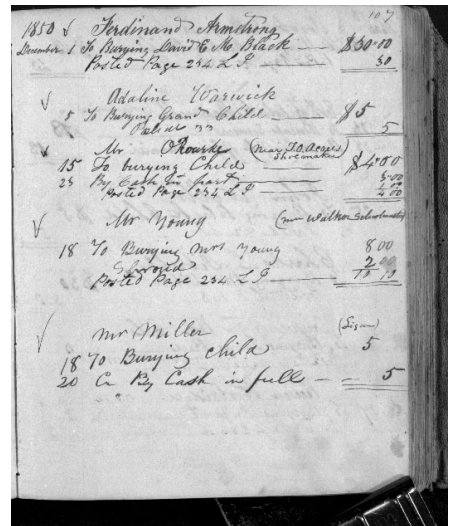 107
1850 Ferdinand Armstrong
December 1 To Burying David C Mc Black $30.00
Posted Page 234 L I 30
Adaline Warwick
5 To Burying Grand Child $5
33 5
Mr O'Rourke (near
Shoemaker)
15 To burying Child $4.00
23 By Cash in part 3.00
Posted Page 234 L I
Mr Young (Mr Walker Schoolmaster)
18 To Burying Mrs Young 8 00
Shroud 2 00
Posted Page 234 L I 10
Mr Miller
18 To Burying child 5
20 Cr By Cash in full 5